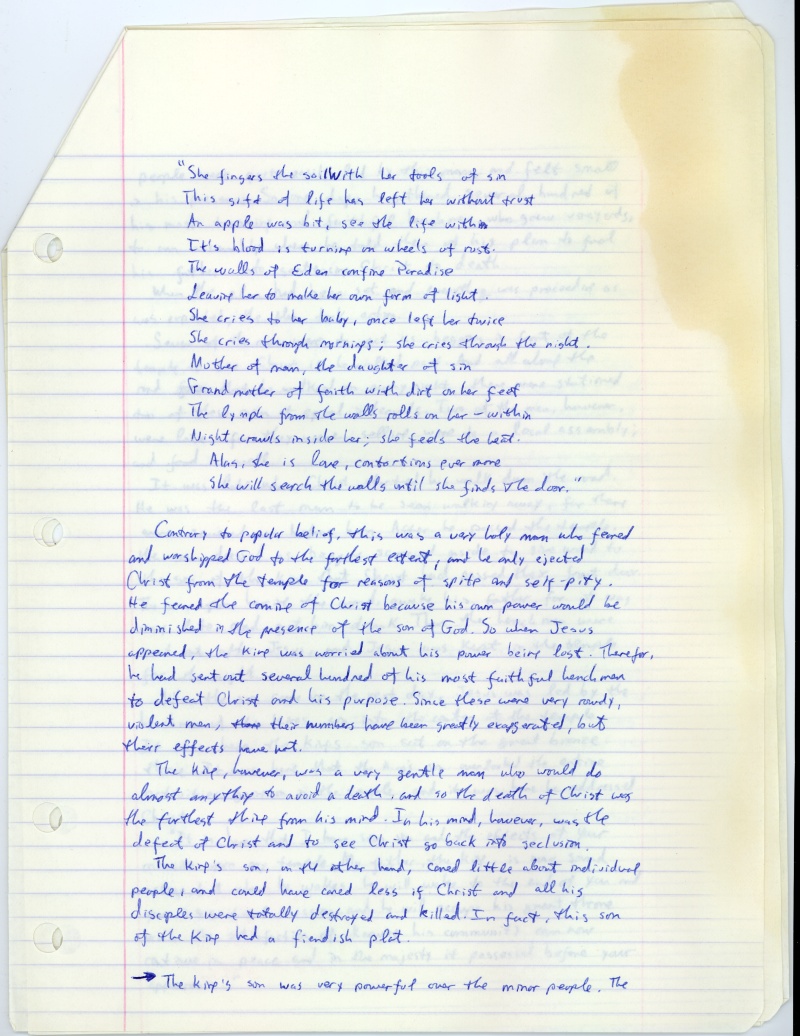 "She fingers the sail With her tools of sin
This gift of life has left her without trust
An apple was bit, see the life within
It's blood is turning on wheels of rust.
The walls of Eden confine Paradise
Leaving her to make her own form of light.
She cries to her baby, once left her twice
She cries through mornings; she cries through the night.
Mother of man, the daughter of sin
Grandmother of faith with dirt on her feet
The lymph from the walls rolls on her - within
Night crawls inside her; she feels the heat.
Alas, she is love, contortions ever more
She will search the walls until she finds the door."
Contrary to popular belief, this was a very holy man who feared
and worshipped God to the furthest extent, and he only ejected
Christ from the temple for reasons of spite and self-pity.
He feared the coming of Christ because his own power would be
diminished in the presence of the son of God. So when Jesus
appeared, the King was worried about his power being lost. Therefor,
he had sent out several hundred of his most faithful henchmen
to defeat Christ and his purpose. Since these were very rowdy,
violent men, their numbers have been greatly exaggerated, but
their effects have not.
The King, however, was a very gentle man who would do
almost anything to avoid a death, and so the death of Christ was
the furthest thing from his mind. In his mind, however, was the
defeat of Christ and to see Christ go back into seclusion.
The King's son, on the other hand, cared little about individual
people, and could have cared less if Christ and all his
disciples were totally destroyed and killed. In fact, this son
of the King had a fiendish plot.
→ The King's son was very powerful over the minor people. The